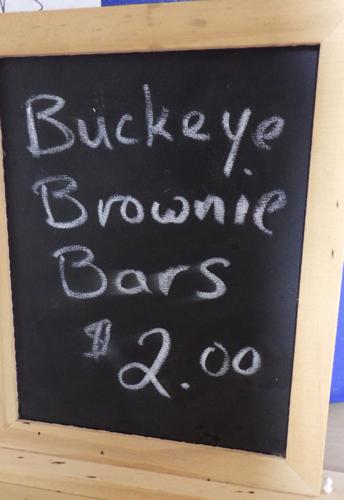 Buckeye
Brownie
Bars
$2.00